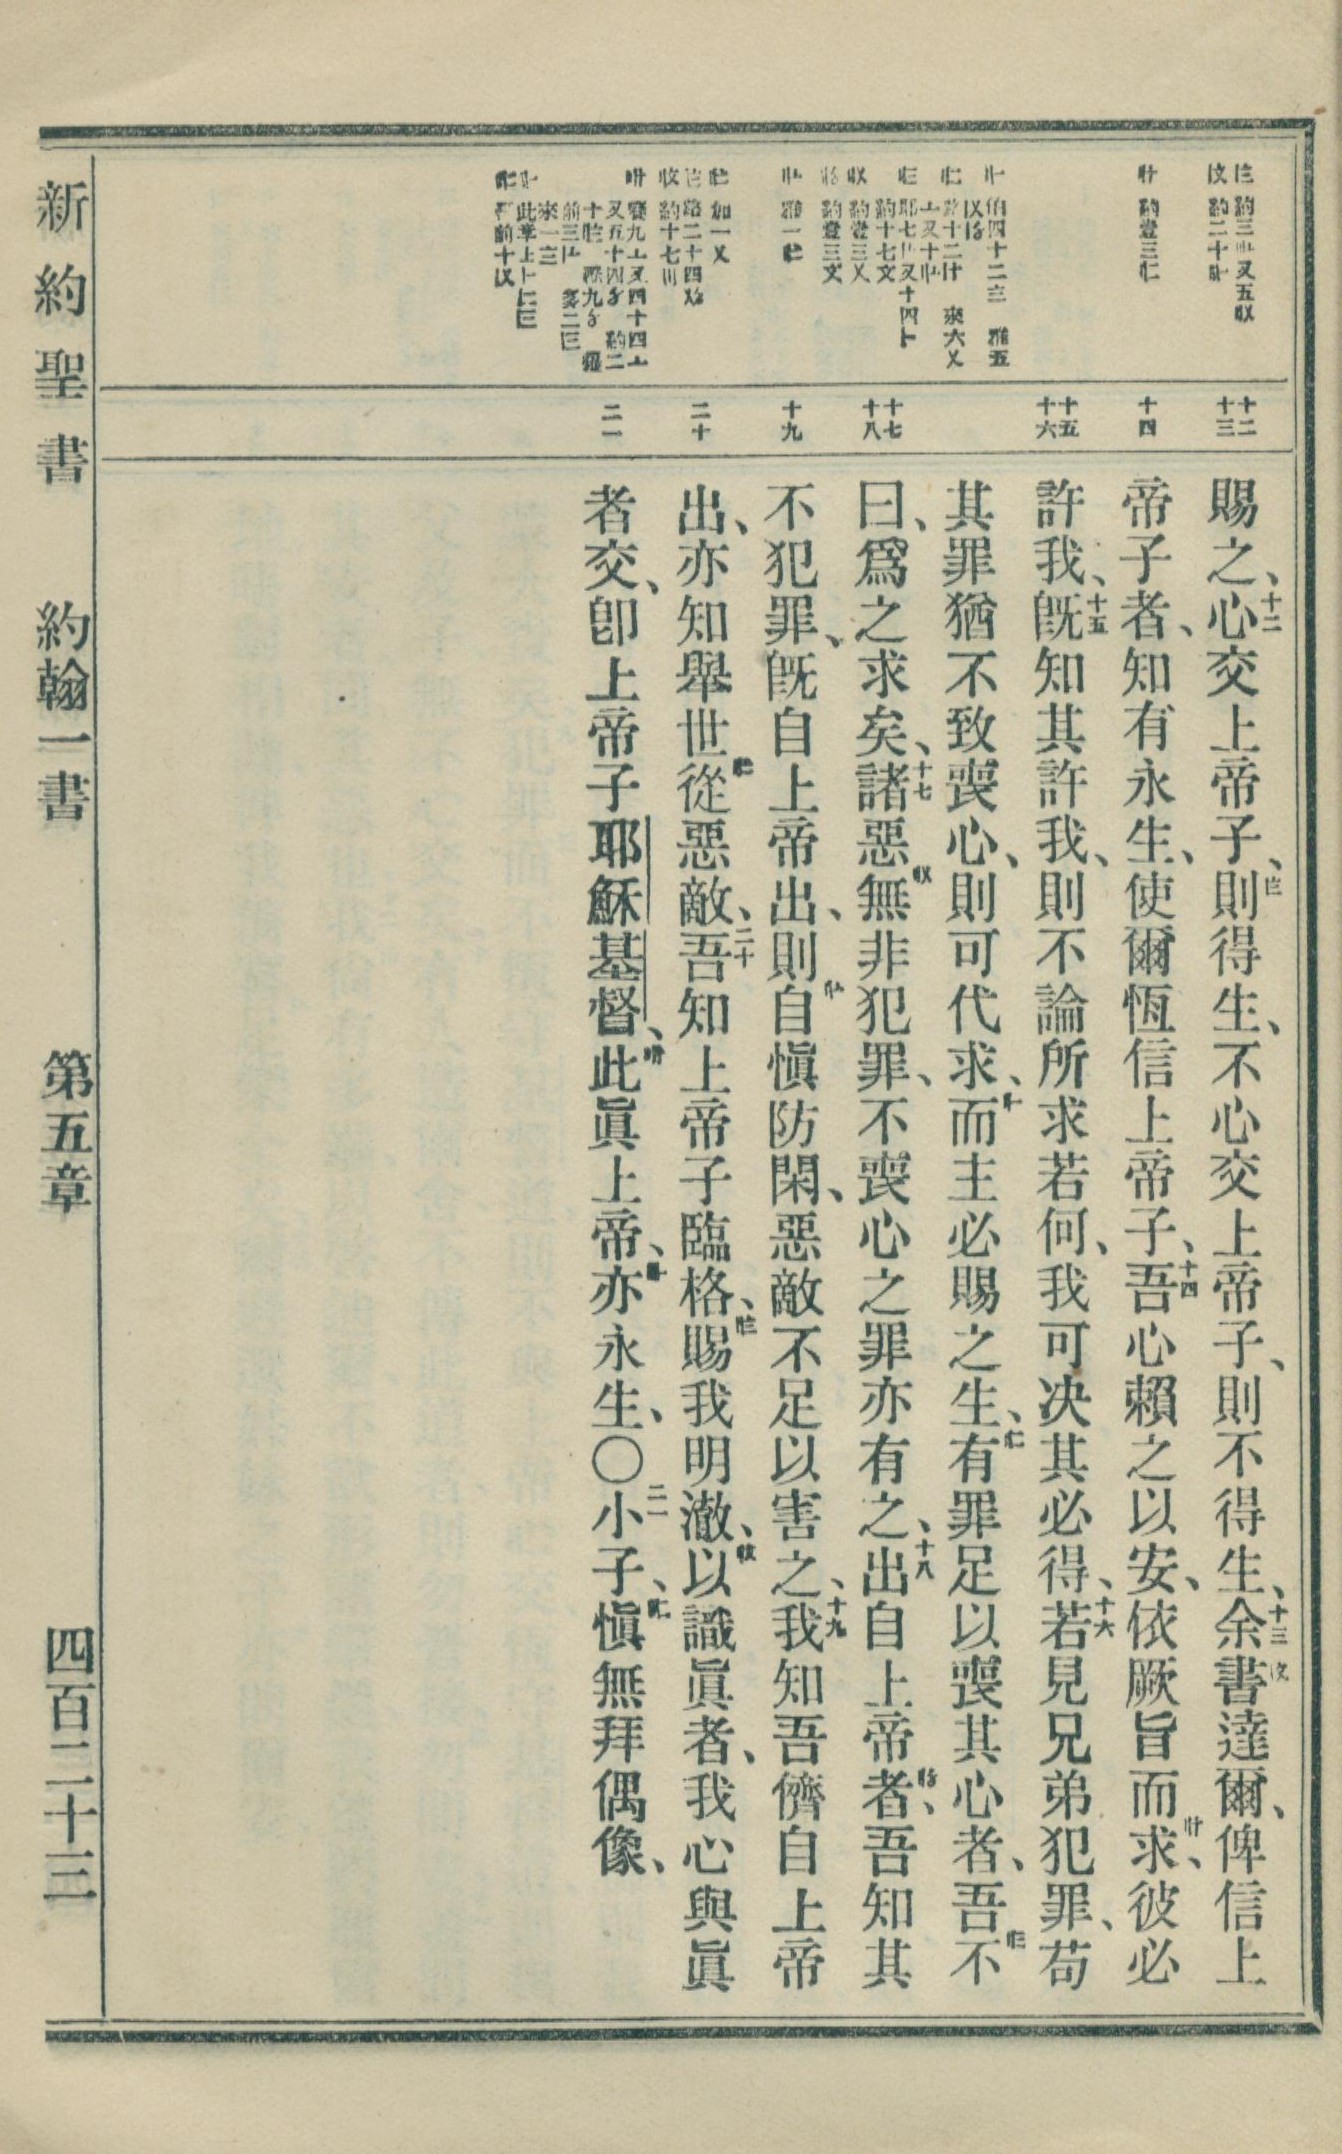 賜之、十二心交上帝子、則得生、不心交上帝子、則不得生、十三余書達爾、俾信上
帝子者、知有永生、使爾恆信上帝子、十四吾心賴之以安、依厥旨而求、彼必
許我、十五旣知其許我、則不論所求若何、我可决其必得、十六若見兄弟犯罪、苟
其罪猶不致喪心、則可代求、而主必賜之生、有罪足以喪其心者、吾不
曰、爲之求矣、十七諸惡無非犯罪、不喪心之罪亦有之、十八出自上帝者、吾知其
不犯罪、旣自上帝出、則自愼防閑、惡敵不足以害之、十九我知吾儕自上帝
出、亦知舉世從惡敵、二十吾知上帝子臨格、賜我明澈、以識眞者、我心與眞
者交、卽上帝子耶穌基督、此眞上帝、亦永生、〇二一小子、愼無拜偶像、
十二
十三
十四
十五
十六
十七
十八
十九
二十
二一
新約聖書 約翰一書 第五章 四百二十三